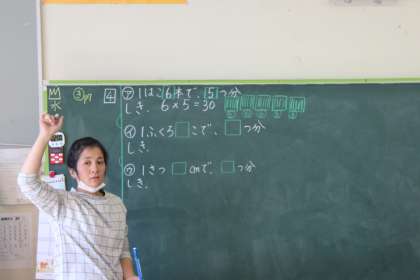 ③ p7
4
㋐ 1はこ6本で、5つ分
しき. 6×5=30
㋑ 1ふくろ□こで、□つ分
しき.
㋒ 1さつ□cmで、□つ分
しき.